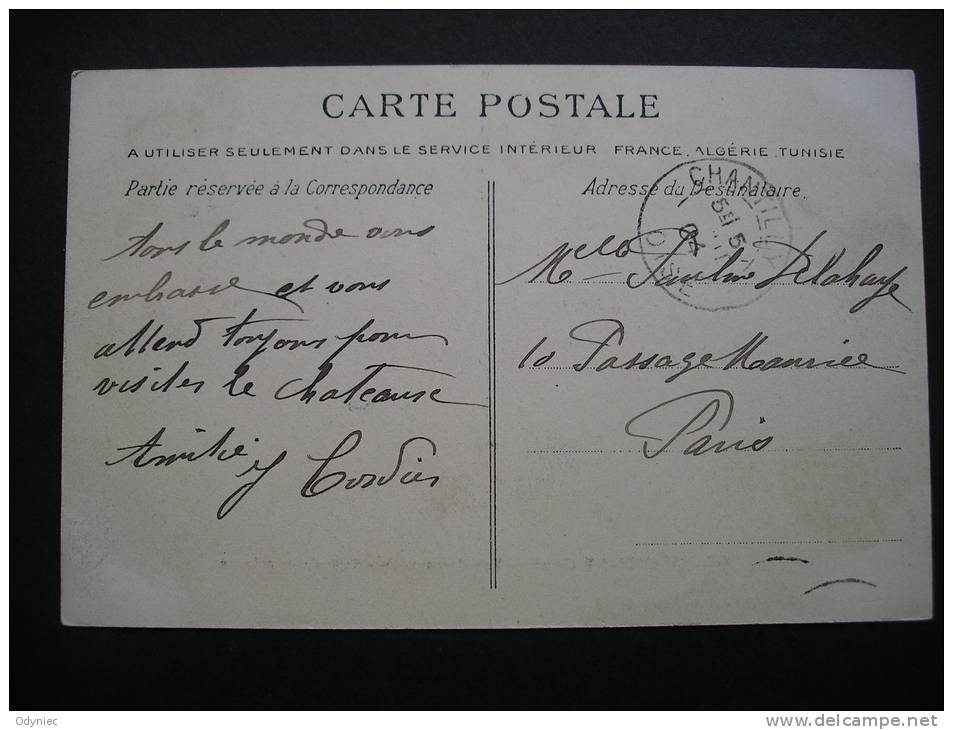 CARTE POSTALE
A UTILISER SEULEMENT DANS LE SERVICE INTÉRIEUR FRANCE, ALGÉRIE, TUNISIE
Partie réservée à la Correspondance
tous le monde vous
embrasse et vous
attend toujours pour
visiter le Chateause
Amitié
Cordier
Adresse du Destinataire.
CHANTILLY
OISE
Melle Pauline Delahaye
10 Passage Maurice
Paris
Odyniec
www.delcampe.net